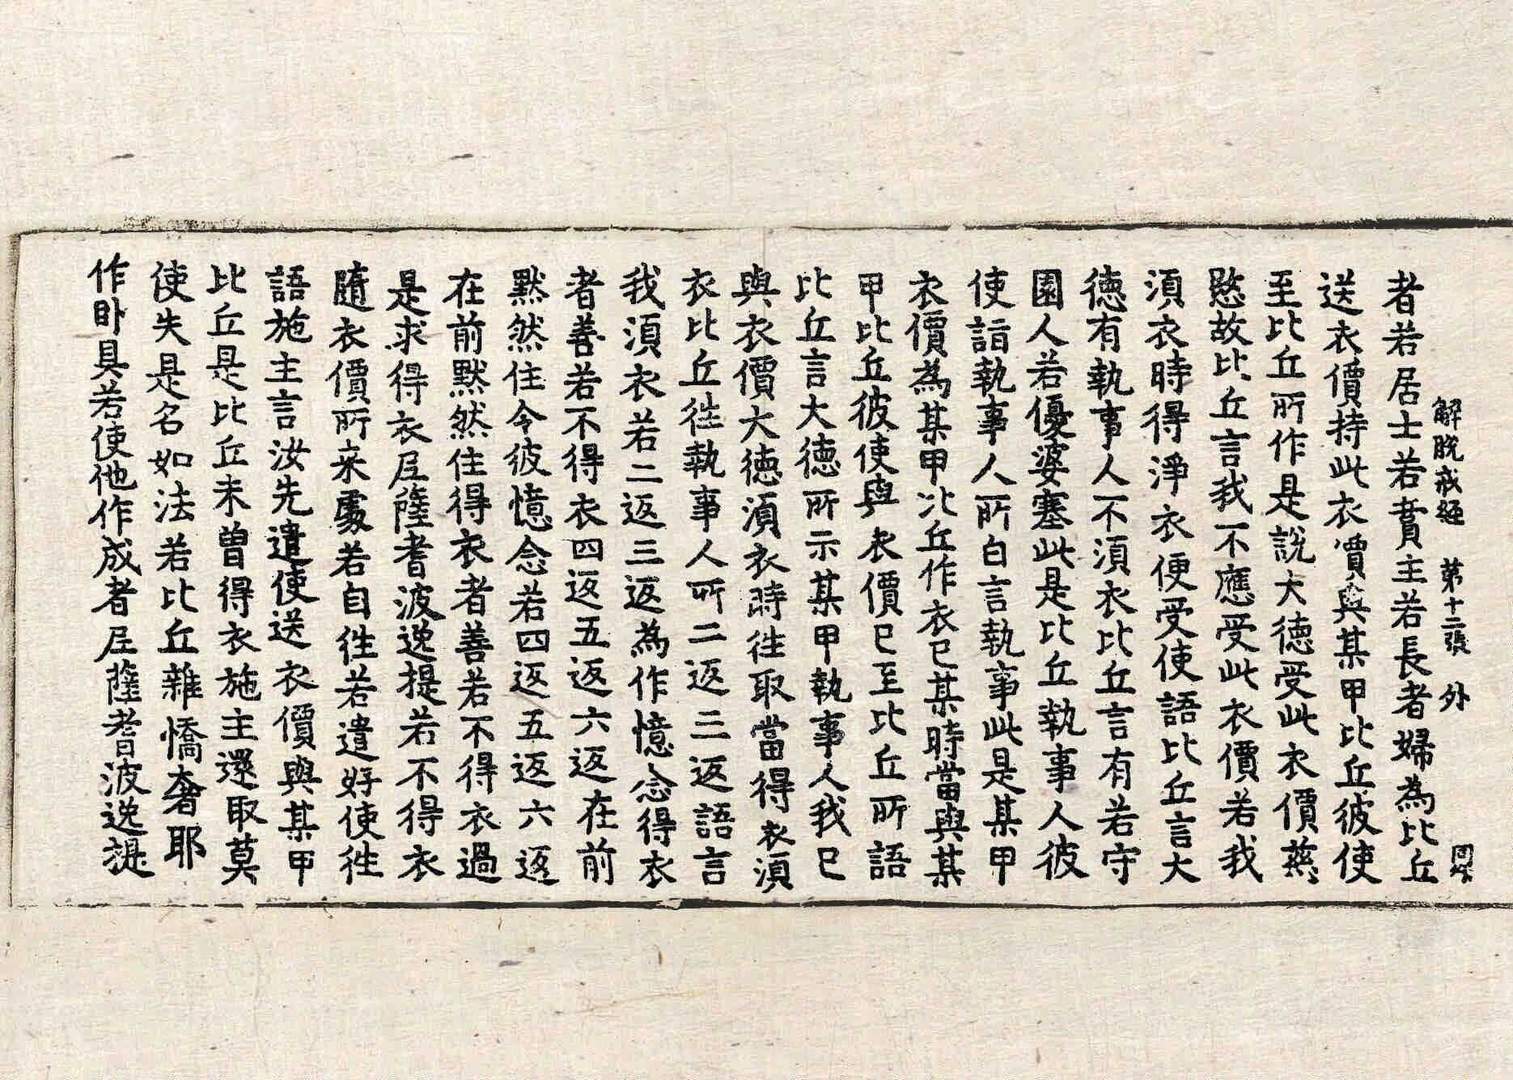 解脫戒經　第十二張　外
者若居士若賣主若長者婦為比丘
送衣價持此衣價與某甲比丘彼使
至比丘所作是說大德受此衣價慈
愍故比丘言我不應受此衣價若我
須衣時得淨衣便受使語比丘言大
德有執事人不須衣比丘言有若守
園人若優婆塞此是比丘執事人彼
使詣執事人所白言執事此是某甲
衣價為某甲比丘作衣已某時當與某
甲比丘彼使與衣價已至比丘所語
比丘言大德所示某甲執事人我已
與衣價大德須衣時往取當得衣須
衣比丘往執事人所二返三返語言
我須衣若二返三返為作憶念得衣
者善若不得衣四返五返六返在前
默然住令彼憶念若四返五返六返
在前默然住得衣者善若不得衣過
是求得衣尼薩耆波逸提若不得衣
隨衣價所來處若自往若遣好使往
語施主言汝先遣使送衣價與某甲
比丘是比丘未曾得衣施主還取莫
使失是名如法若比丘雜憍奢耶
作卧具若使他作成者尼薩耆波逸提